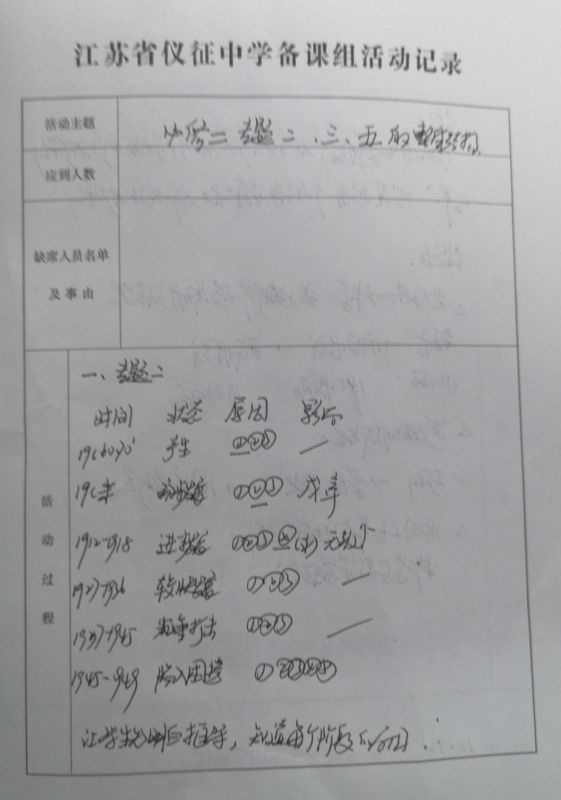 江苏省仪征中学备课组活动记录
活动主题 必修二 专题二、三、五的整体结构
应到人数
缺席人员名单
及事由
活动过程
一、专题二
时间 状态 原因 影响
19C60.70' 产生 ①②③ —
19C末 初步发展 ①②③
1912-1918 进一步发展 ①②③④
1927-1936 较快发展 ①②③ —
1937-1945 沉重打击 ①②③ —
1945-1949 陷入困境 ①②③④⑤
让学生分 推导，知道每个阶段